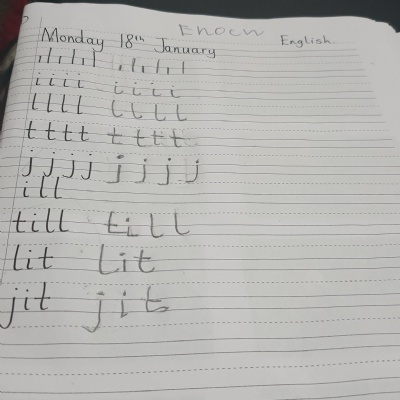 Enocw
Monday 18th January English.
ı l ı l ı l ı ı ı ı l
i i i i i i i i
l l l l l l l l
t t t t t t t t
j j j j j j j j
ill
till till
lit lit
jit jit